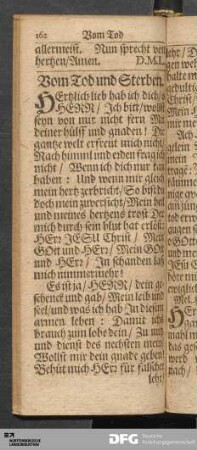 162 Vom Tod
allermeist. Nun sprecht von
hertzen/Amen. D.M.L.
Vom Tod und Sterben.
HErtzlich lieb hab ich dich/o
HERR/ Ich bitt/wollst
seyn von mir nicht fern Mit
deiner hülff und gnaden! Die
gantze welt erfreut mich nicht/
Nach himmel und erden frag ich
nicht/ Wenn ich dich nur kan
haben: Und wenn mir gleich
mein hertz zerbricht/So bist du
doch mein zuversicht/Mein heil
und meines hertzens trost Der
mich durch sein blut hat erlöst:
HErr JESU Christ/ Mein
GOtt und HErr/ Mein GOtt
und HErr/ In schanden laß
mich nimmermehr!
Es ist ja/HERR/ dein ge-
schenck und gab/Mein leib und
seel/und was ich hab In diesem
armen leben: Damit ichs
brauch zum lobe dein/ Zu nutz
und dienst des nechsten mein/
Wollst mir dein gnade geben!
Behüt mich HErr für falscher
lehr/
DFG Deutsche
Forschungsgemeinschaft